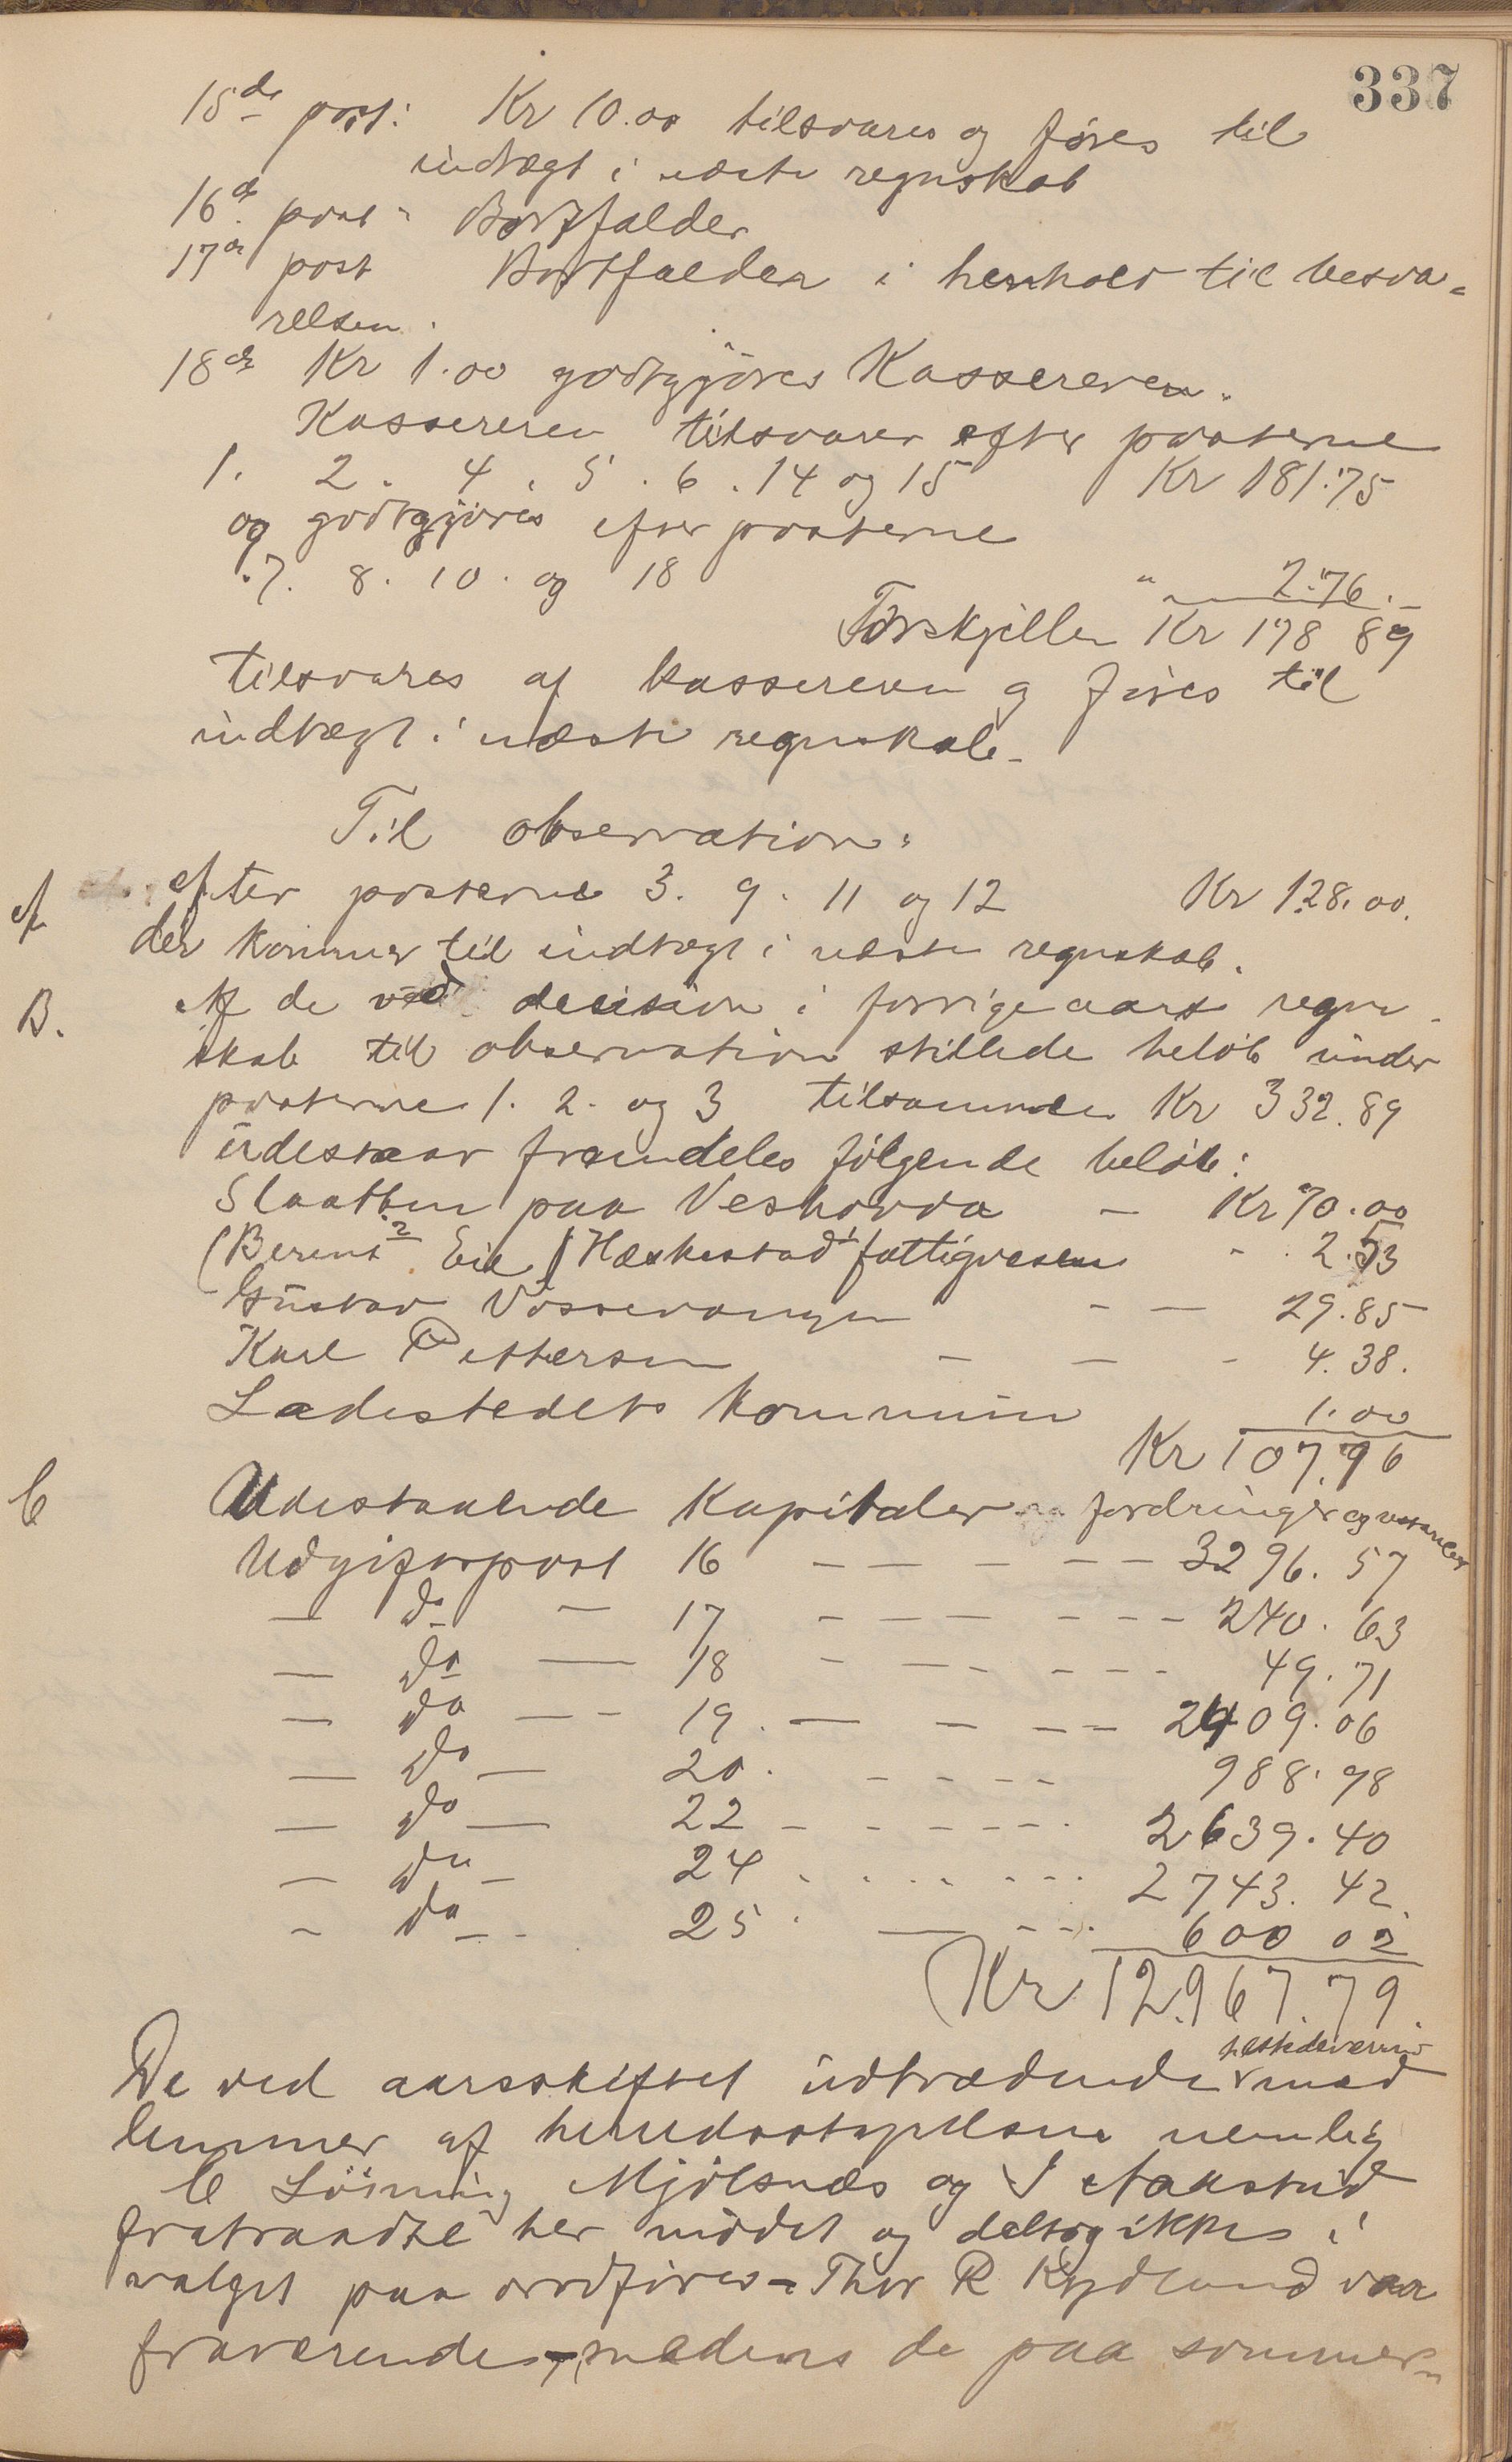 337
15de post: Kr 10.00 tilsvares og föres til
indtægt i næste regnskab
16de post " Bortfalder
17de post Bortfalder i henhold til besva-
relsen.
18de Kr 1.00 godtgjöres Kassereren.
Kassereren tilsvarer efter posterne
1. 2. 4. 5. 6. 14 og 15 Kr 181.75
og godtgjöres efter posterne
7. 8. 10. og 18 " 2.76.
Forskjellen Kr 178 89
tilsvares af kassereren og föres til
indtægt i næste regnskab.
Til observation:
A efter posterne 3. 9. 11 og 12 Kr 128.00.
der kommer til indtægt i næste regnskab.
B. Af de ved decision i forrige aars regn-
skab til observation stillede belöb under
posterne 1. 2. og 3 tilsammen Kr 332.89
udestaar fremdeles fölgende belöb:
Slaatten paa Veshovda - Kr 70.00
(Berent Eie) Hæskestad fattigvesen - 2.53
Gustav Vossevangen - - 29.85
Karl Pettersen - - - 4.38.
Ladestedets kommune 1.00
Kr 107.96
C Udestaaende Kapitaler fordringer og
Udgiftspost 16 - - - - - 3296.57
- do - 17 - - - - - - 240.63
- do - 18 - - - - - - 49.71
- do - - 19. - - - - 2409.06
- do - 20. - - - - 988.98
- do - 22 - - - - - - 2639.40
- do - 24 . . . . - - - 2743.42.
- do - - 25 . - - - 600 02
Kr 12.967.79.
tilstedeværende
De ved aarsskiftet udtrædende med
lemmer af herredsstyrelsen nemlig
C Löining Mjölsnæs og
fratraadte her mödet og deltog ikke i
valget paa ordförer - Thor R Rydland var
fraværende, medens de paa sommer-